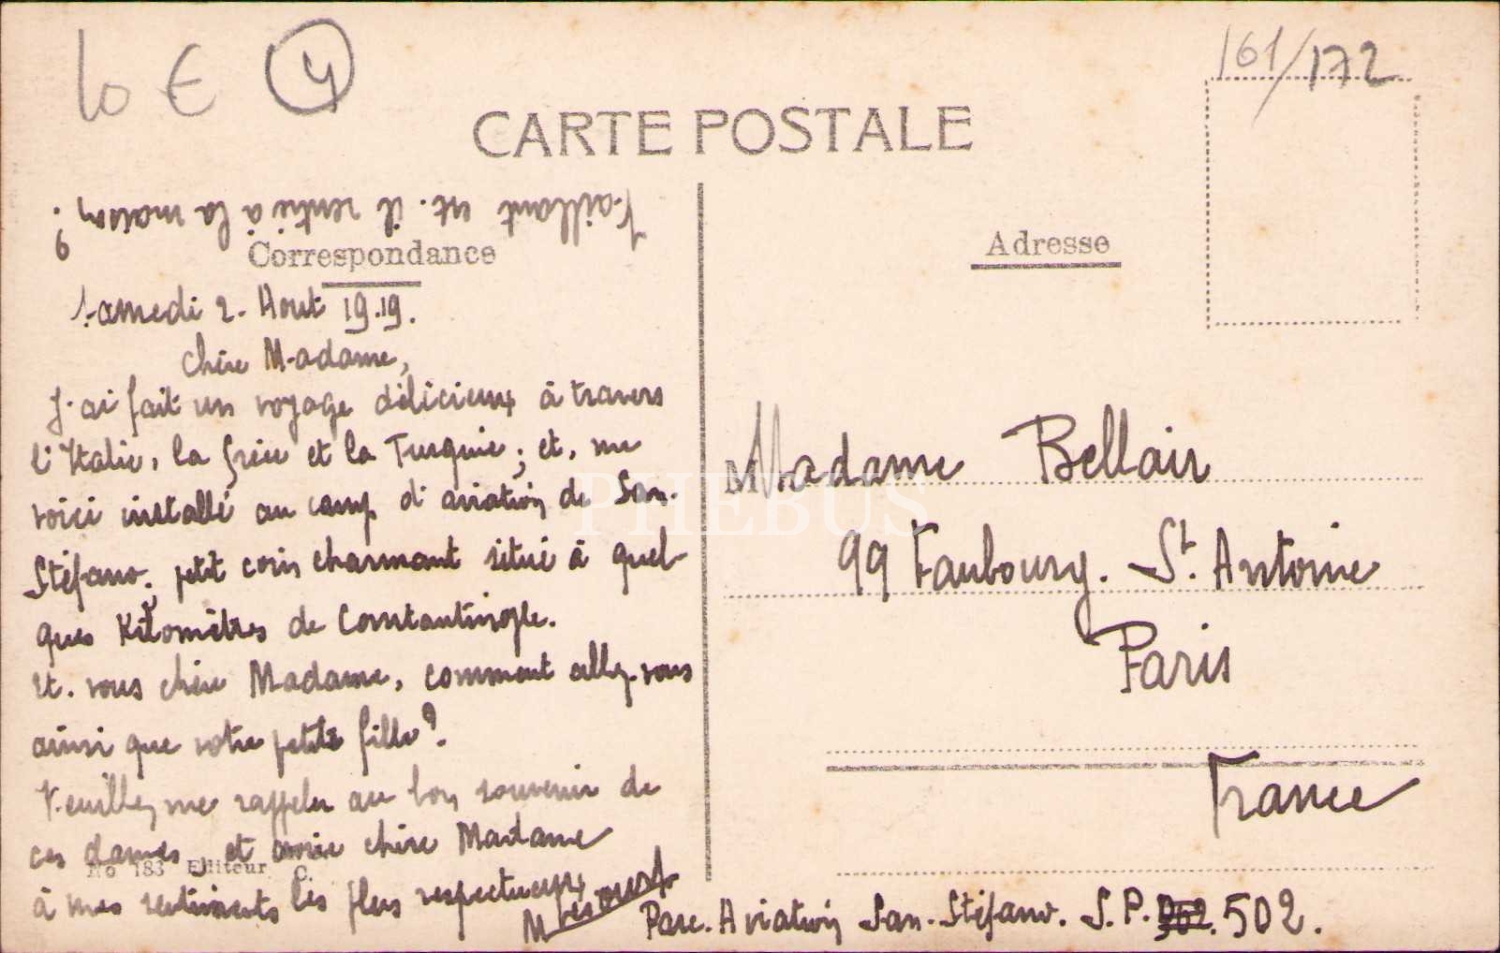 10 € 4
161/172
CARTE POSTALE
Vaillant est-il rentré à la maison ?
Correspondance
Adresse
Samedi 2. Aout 1919.
Chère Madame,
J'ai fait un voyage délicieux à travers
l'Italie, la Grèce et la Turquie ; et, me
voici installé au camp d'aviation de San-
Stéfano, petit coin charmant situé à quel-
ques Kilomètres de Constantinople.
Et vous chère Madame, comment allez-vous
ainsi que votre petite fille ?
Veuillez me rappeler au bon souvenir de
ces dames et croire chère Madame
à mes sentiments les plus respectueux
No 183 Editeur C.
Madame Bellair
99 Faubourg. St. Antoine
Paris
France
Parc. Aviation San-Stéfano. S.P. 502.
PHEBUS